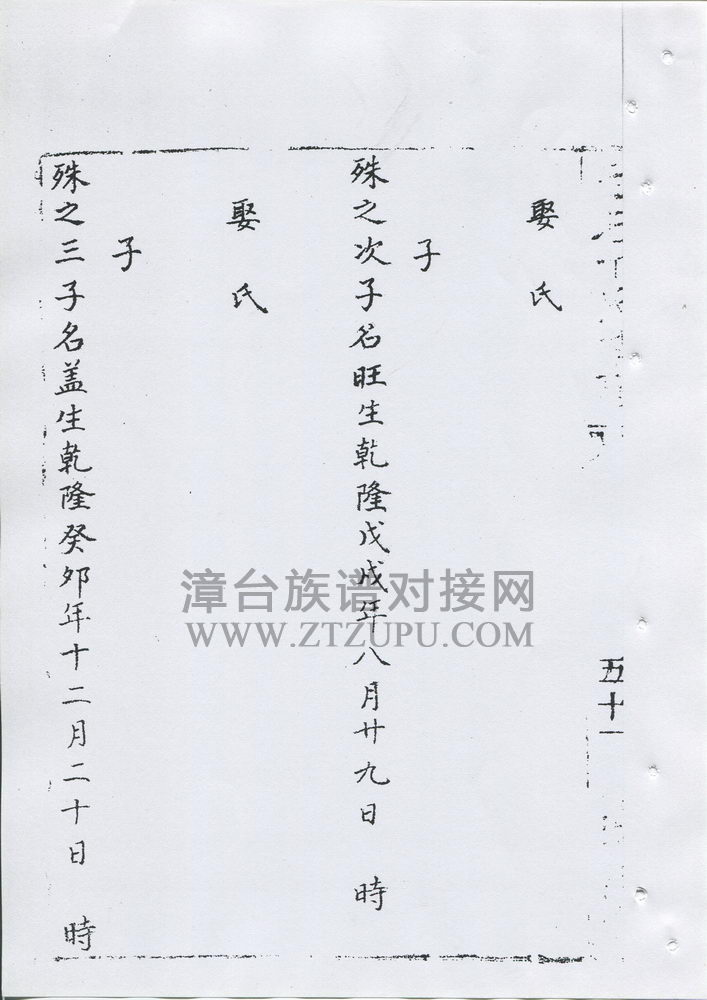 五十一
娶 氏
子
殊之次子名旺生乾隆戊戌年八月廿九日 時
娶 氏
子
殊之三子名盖生乾隆癸夘年十二月二十日 時
漳台族谱对接网
WWW.ZTZUPU.COM